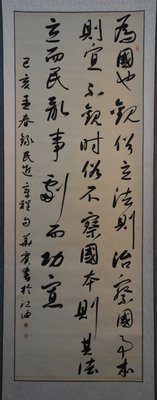 為國也觀俗立法則治察國事本
則宜不觀时俗不察國本則其法
立而民亂事劇而功寡
己亥孟春錄民 章程句 書於江油